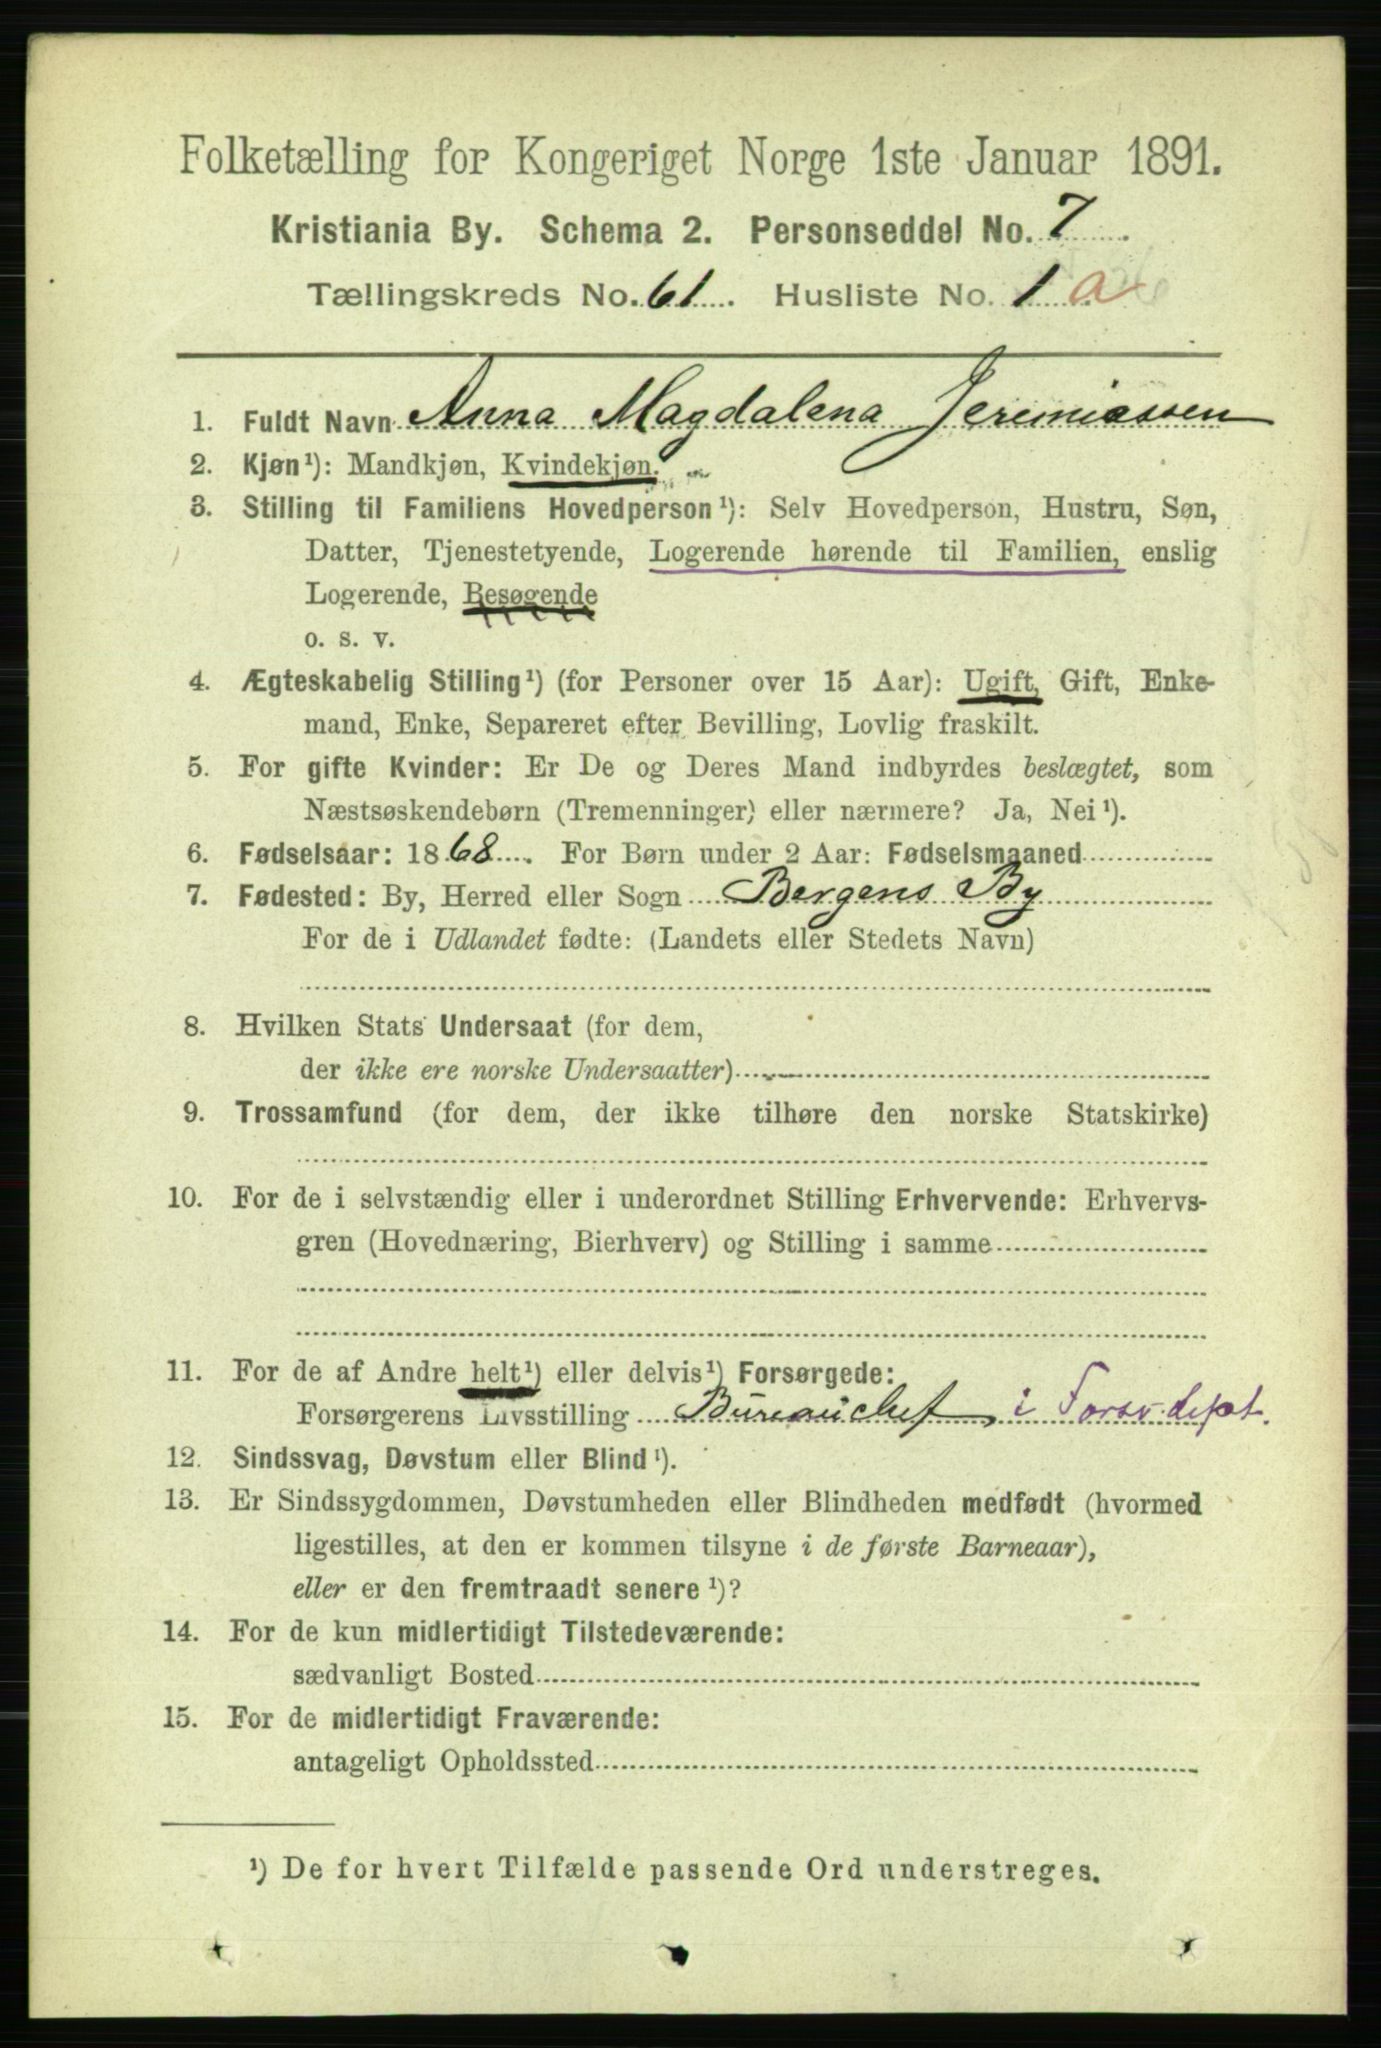 Folketælling for Kongeriget Norge 1ste Januar 1891.
Kristiania By. Schema 2. Personseddel No. 7
Tællingskreds No. 61. Husliste No. 1 a
1. Fuldt Navn Anna Magdalena Jeremiassen
2. Kjøn¹): Mandkjøn, Kvindekjøn.
3. Stilling til Familiens Hovedperson¹): Selv Hovedperson, Hustru, Søn,
Datter, Tjenestetyende, Logerende hørende til Familien, enslig
Logerende, Besøgende
o. s. v.
4. Ægteskabelig Stilling¹) (for Personer over 15 Aar): Ugift, Gift, Enke-
mand, Enke, Separeret efter Bevilling, Lovlig fraskilt.
5. For gifte Kvinder: Er De og Deres Mand indbyrdes beslægtet, som
Næstsøskendebørn (Tremenninger) eller nærmere? Ja, Nei¹).
6. Fødselsaar: 1868. For Børn under 2 Aar: Fødselsmaaned
7. Fødested: By, Herred eller Sogn Bergens By
For de i Udlandet fødte: (Landets eller Stedets Navn)
8. Hvilken Stats Undersaat (for dem,
der ikke ere norske Undersaatter)
9. Trossamfund (for dem, der ikke tilhøre den norske Statskirke)
10. For de i selvstændig eller i underordnet Stilling Erhvervende: Erhvervs-
gren (Hovednæring, Bierhverv) og Stilling i samme
11. For de af Andre helt¹) eller delvis¹) Forsørgede:
Forsørgerens Livsstilling Bureauchef i Forsv. dept.
12. Sindssvag, Døvstum eller Blind¹).
13. Er Sindssygdommen, Døvstumheden eller Blindheden medfødt (hvormed
ligestilles, at den er kommen tilsyne i de første Barneaar),
eller er den fremtraadt senere¹)?
14. For de kun midlertidigt Tilstedeværende:
sædvanligt Bosted
15. For de midlertidigt Fraværende:
antageligt Opholdssted
¹) De for hvert Tilfælde passende Ord understreges.